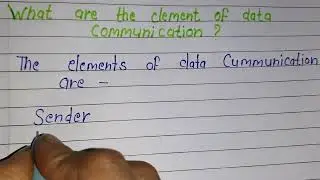 What are the element of data
Communication ?
The elements of data Cummunication
are -
Sender